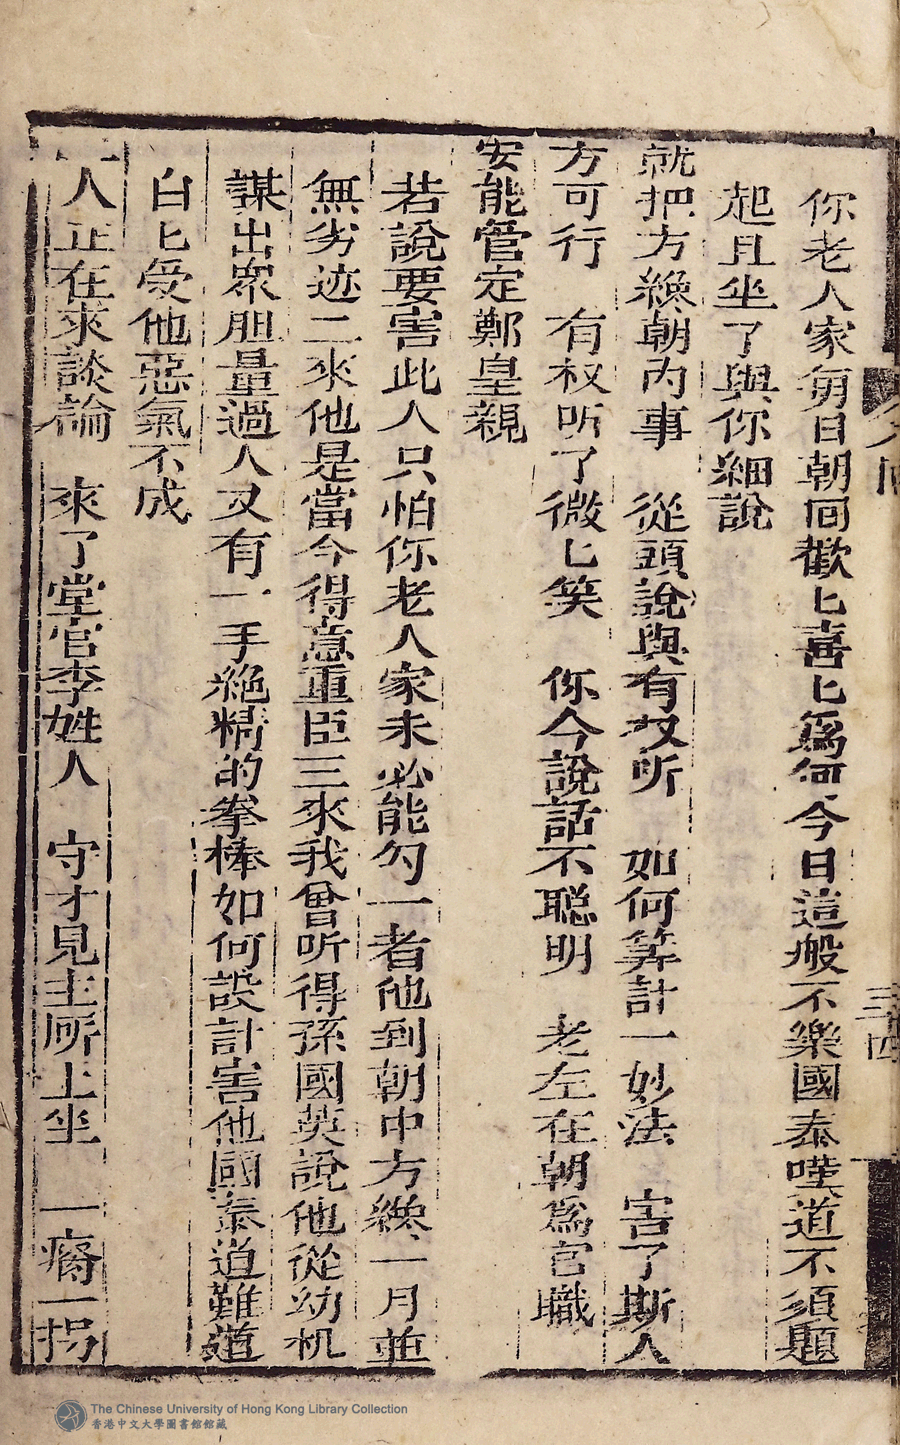 你老人家每日朝回歡匕喜匕爲何今日這般不樂國泰噗道不須題
起且坐了與你細說
就把方纔朝內事　從頭說與有权听　如何筭計一妙法　害了斯人
方可行　有权听了微匕笑　你今說話不聪明　老左在朝爲官職
安能管定鄭皇親
若說要害此人只怕你老人家未必能勾一者他到朝中方纔一月並
無劣迹二來他是當今得意重臣三來我曾听得孫國英說他從幼机
謀出衆胆量過人又有一手絶精的拳棒如何設計害他國泰道難道
白匕受他惡氣不成
二人正在來談論　來了堂官李姓人　守才見主所上坐　一瘸一拐
三十四
The Chinese University of Hong Kong Library Collection
香港中文大學圖書館館藏